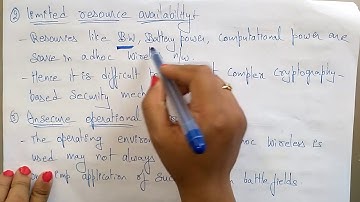 ② Limited resource availability
- Resources like BW, Battery power, computational power are
scarce in adhoc wireless n/w.
- Hence it is difficult to complex cryptography-
based security mech
③ Insecure operational
- The operating environ hoc wireless is
used may not always
- Imp application of suc battlefields